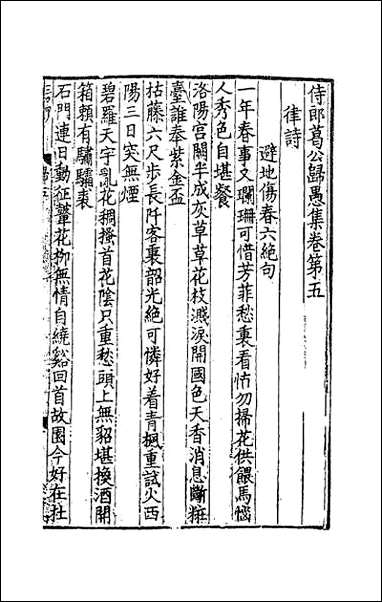 侍郎葛公歸愚集卷第五
律詩
避地傷春六絕句
一年春事又斕珊可惜芳菲愁裏看怕勿掃花供餵馬惱
人秀色自堪餐
洛陽宮闕半成灰草草花枝濺淚開國色天香消息斷粧
臺誰奉紫金盃
枯藤六尺步長阡客裏韶光絕可憐好着青楓重試火西
陽三日突無煙
碧羅天宇亂花稠搔首花陰只重愁頭上無貂堪換酒開
箱賴有驌驦裘
石門連日動征鼙花柳無情自繞谿回首故園今好在杜